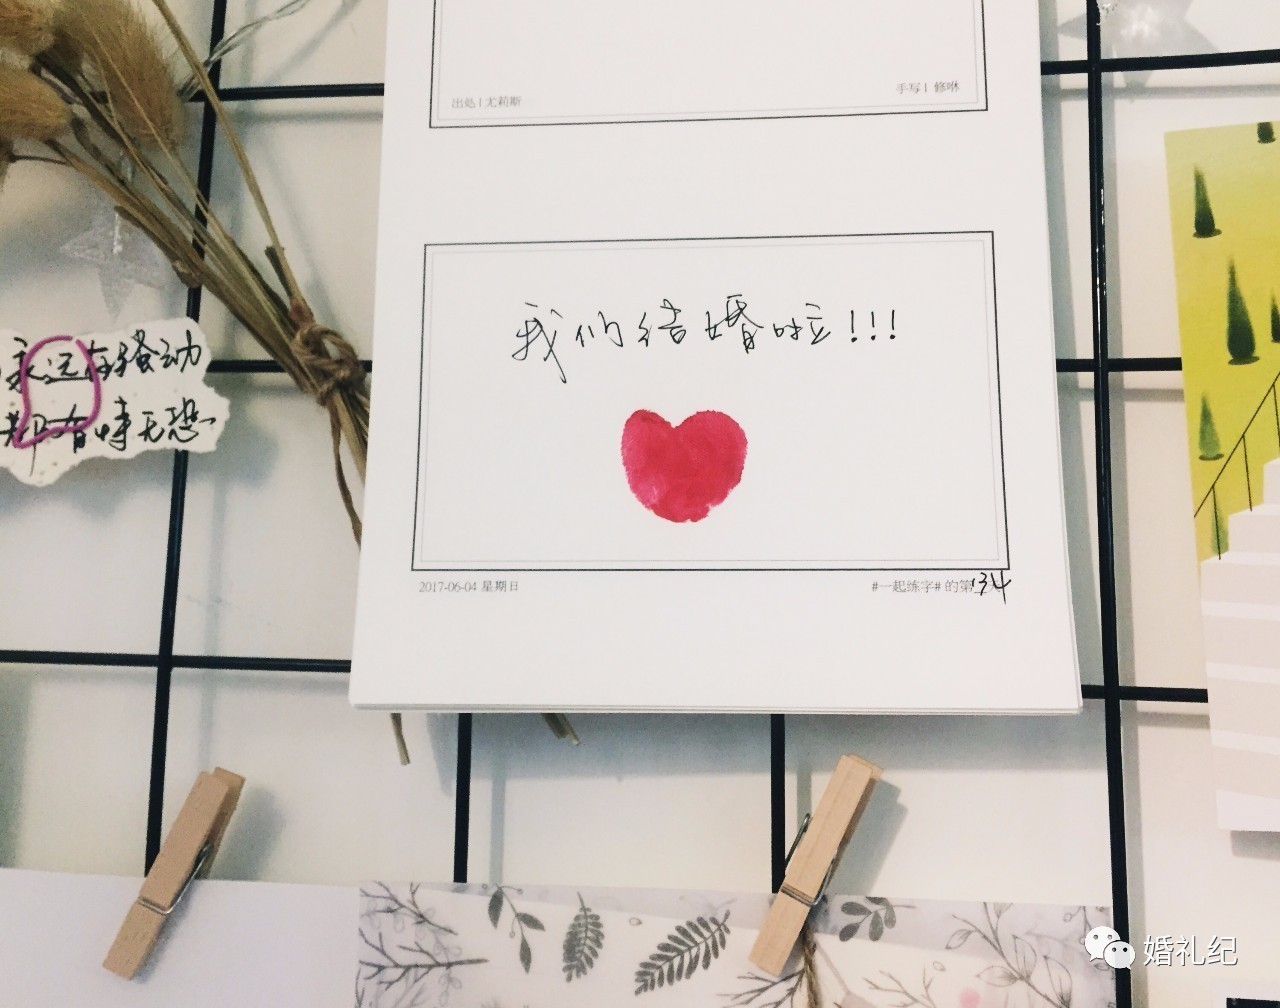 出处 | 尤莉斯
手写 | 修咻
我们结婚啦!!!
2017-06-04 星期日
#一起练字# 的第134
永远在骚动
都有恃无恐
婚礼纪